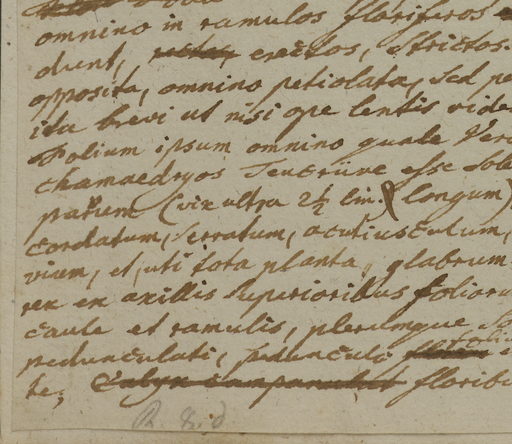 omnino in ramulos floriferos
dunt, erectos, strictos.
opposita, omnino petiolata, sed pe
ita brevi ut nisi ope lentis vide
Folium ipsum omnino quale Vero
chamaedryos Teucriive esse sole
parvum (vix ultra 2½ lin. longum)
cordatum, serratum, acutiusculum,
vium, et, uti tota planta, glabrum.
res ex axillis superioribus folioru
caule et ramulis, plerumque
pedunculati, pedunculo
te; Calyx campanulat floribu